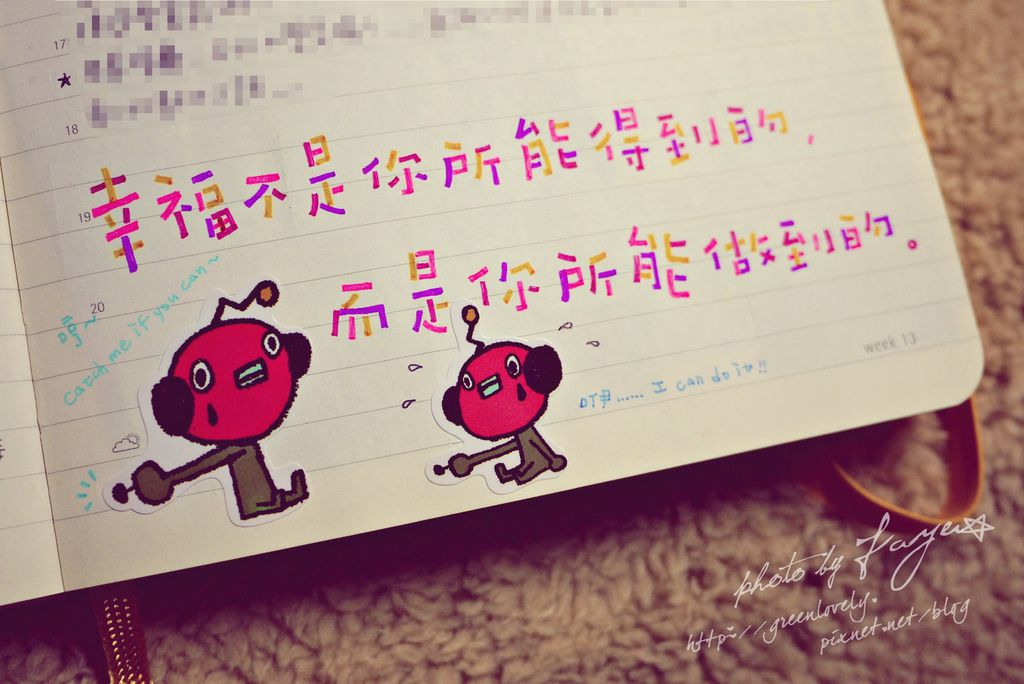 17
18
幸福不是你所能得到的,
19
而是你所能做到的。
20
哼~
catch me if you can~
week 13
咿...... I can do it!!
photo by Faye
http://greenlovely.
pixnet.net/blog